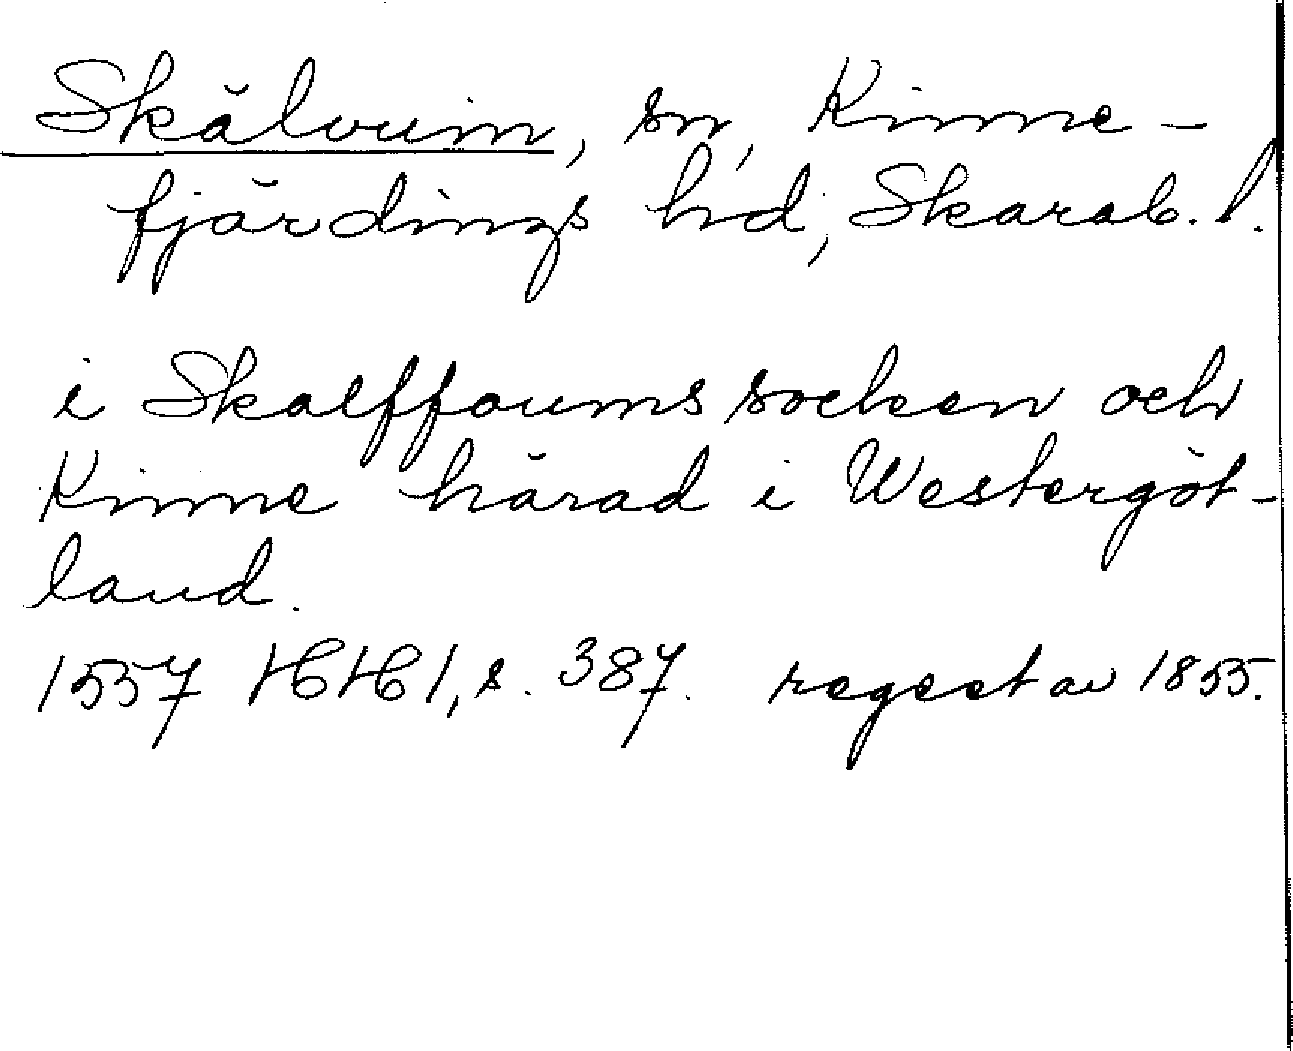 Skälvum, sn, Kinne-
fjärdings hd, Skarab. l.
i Skalffoums socken och
Kinne härad i Westergöt-
land.
1557 HH 1, s. 387. regest av 1855.